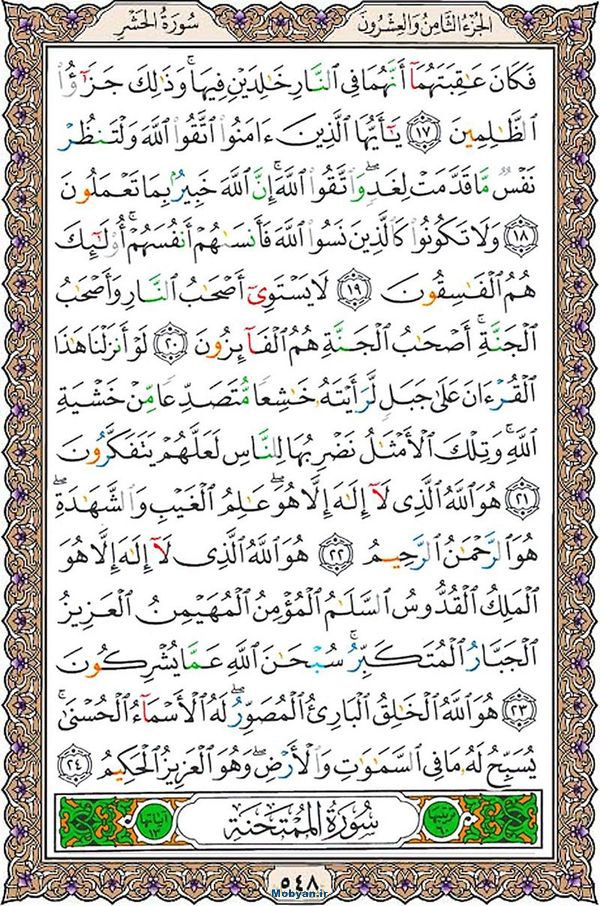 سُورَةُ الحَشْرِ
الجُزءُ الثَّامِنُ وَالعِشْرُونَ
فَكَانَ عَـٰقِبَتَهُمَآ أَنَّهُمَا فِى ٱلنَّارِ خَـٰلِدَيْنِ فِيهَا ۚ وَذَٰلِكَ جَزَٰٓؤُا۟
ٱلظَّـٰلِمِينَ ﴿١٧﴾ يَـٰٓأَيُّهَا ٱلَّذِينَ ءَامَنُوا۟ ٱتَّقُوا۟ ٱللَّهَ وَلْتَنظُرْ
نَفْسٌ مَّا قَدَّمَتْ لِغَدٍ ۖ وَٱتَّقُوا۟ ٱللَّهَ ۚ إِنَّ ٱللَّهَ خَبِيرٌۢ بِمَا تَعْمَلُونَ
﴿١٨﴾ وَلَا تَكُونُوا۟ كَٱلَّذِينَ نَسُوا۟ ٱللَّهَ فَأَنسَىٰهُمْ أَنفُسَهُمْ ۚ أُو۟لَـٰٓئِكَ
هُمُ ٱلْفَـٰسِقُونَ ﴿١٩﴾ لَا يَسْتَوِىٓ أَصْحَـٰبُ ٱلنَّارِ وَأَصْحَـٰبُ
ٱلْجَنَّةِ ۚ أَصْحَـٰبُ ٱلْجَنَّةِ هُمُ ٱلْفَآئِزُونَ ﴿٢٠﴾ لَوْ أَنزَلْنَا هَـٰذَا
ٱلْقُرْءَانَ عَلَىٰ جَبَلٍ لَّرَأَيْتَهُۥ خَـٰشِعًا مُّتَصَدِّعًا مِّنْ خَشْيَةِ
ٱللَّهِ ۚ وَتِلْكَ ٱلْأَمْثَـٰلُ نَضْرِبُهَا لِلنَّاسِ لَعَلَّهُمْ يَتَفَكَّرُونَ
﴿٢١﴾ هُوَ ٱللَّهُ ٱلَّذِى لَآ إِلَـٰهَ إِلَّا هُوَ ۖ عَـٰلِمُ ٱلْغَيْبِ وَٱلشَّهَـٰدَةِ ۖ
هُوَ ٱلرَّحْمَـٰنُ ٱلرَّحِيمُ ﴿٢٢﴾ هُوَ ٱللَّهُ ٱلَّذِى لَآ إِلَـٰهَ إِلَّا هُوَ
ٱلْمَلِكُ ٱلْقُدُّوسُ ٱلسَّلَـٰمُ ٱلْمُؤْمِنُ ٱلْمُهَيْمِنُ ٱلْعَزِيزُ
ٱلْجَبَّارُ ٱلْمُتَكَبِّرُ ۚ سُبْحَـٰنَ ٱللَّهِ عَمَّا يُشْرِكُونَ
﴿٢٣﴾ هُوَ ٱللَّهُ ٱلْخَـٰلِقُ ٱلْبَارِئُ ٱلْمُصَوِّرُ ۖ لَهُ ٱلْأَسْمَآءُ ٱلْحُسْنَىٰ ۚ
يُسَبِّحُ لَهُۥ مَا فِى ٱلسَّمَـٰوَٰتِ وَٱلْأَرْضِ ۖ وَهُوَ ٱلْعَزِيزُ ٱلْحَكِيمُ ﴿٢٤﴾
ترتيبها ٦٠
سُورَةُ المُمْتَحَنَةِ
آياتها ١٣
٥٤٨
Mobyan.ir